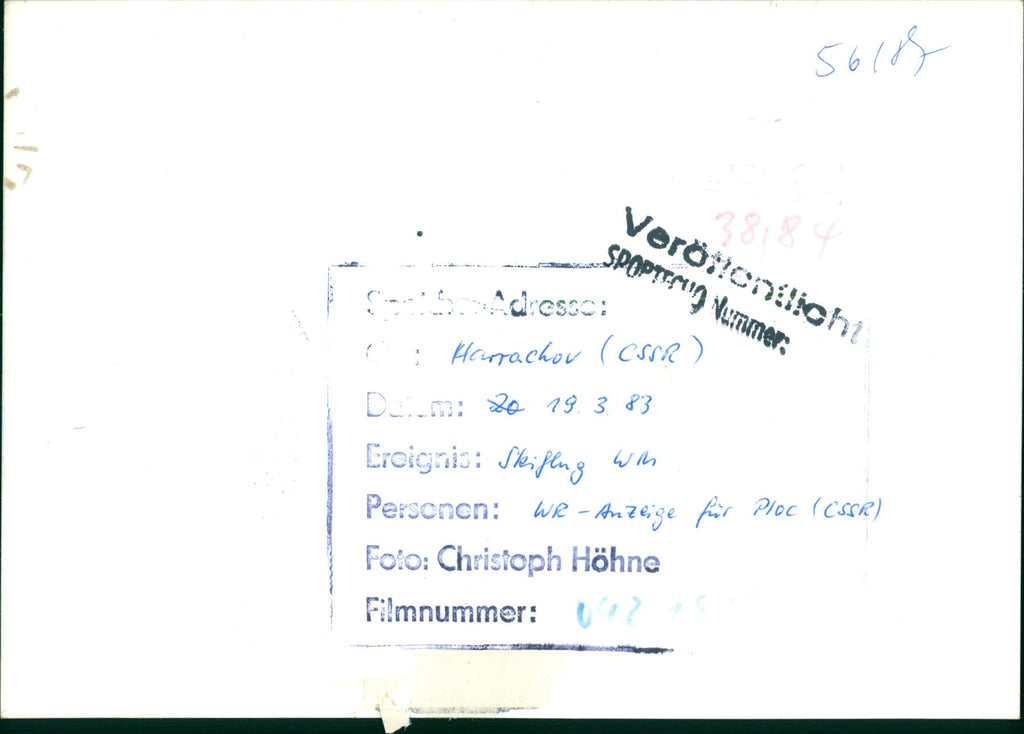 56/87
38/84
Veröffentlicht
SPORTECHO Nummer:
Speicher-Adresse:
Ort: Harrachov (CSSR)
Datum: 20 19.3.83
Ereignis: Skiflug WM
Personen: WR-Anzeige für Ploc (CSSR)
Foto: Christoph Höhne
Filmnummer: 042